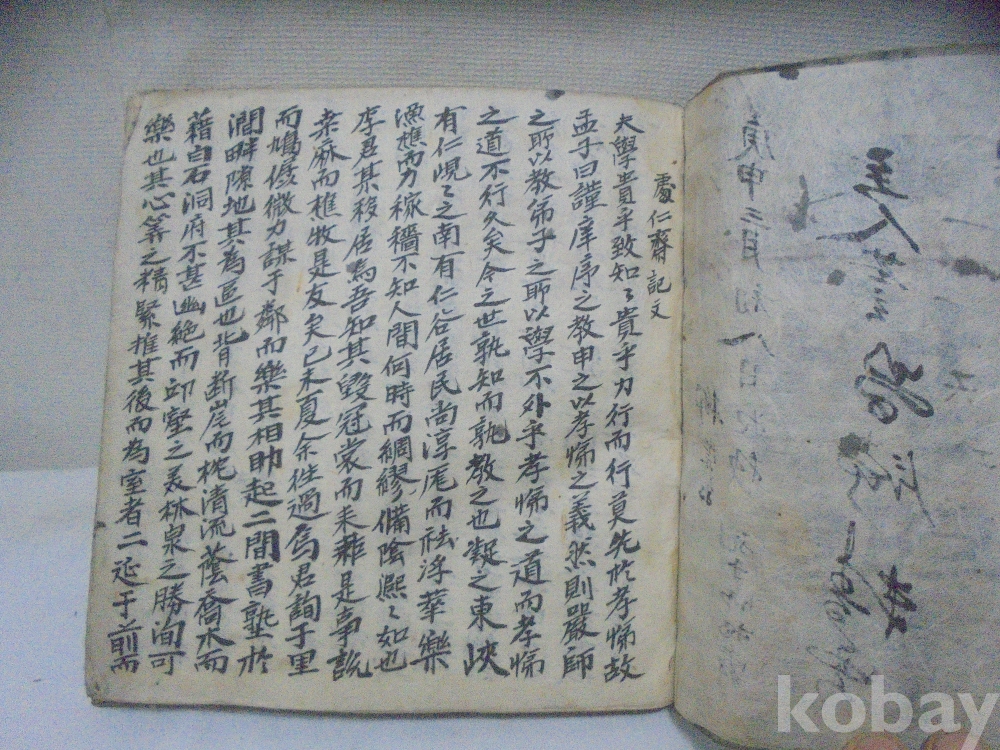 處仁齋記文
大學貴乎致知〻貴乎力行而行莫先於孝悌故
孟子曰謹庠序之教申之以孝悌之義然則嚴師
之所以教弟子之所以學不外乎孝悌之道而孝悌
之道不行久矣今之世孰知而孰教之也凝之東峽
有仁峴〻之南有仁谷居民尚淳厖而祛浮華樂
漁樵力稼穡不知人間何時而綢繆備陰凞〻如也
李君某移居焉吾知其毀冠裳而耒耟是事說
桒麻而樵牧是友矣已未夏余往過焉君詢于里
而鳩孱微力謀于鄰而樂其相助起二間書塾於
澗畔隙地其為區也背斷崖而枕清流蔭喬木而
藉白石洞府不甚幽絕而邱壑之美林泉之勝洵可
樂也其心筭之精緊推其後而為室者二延于前而
庚申三月初八日
kobay